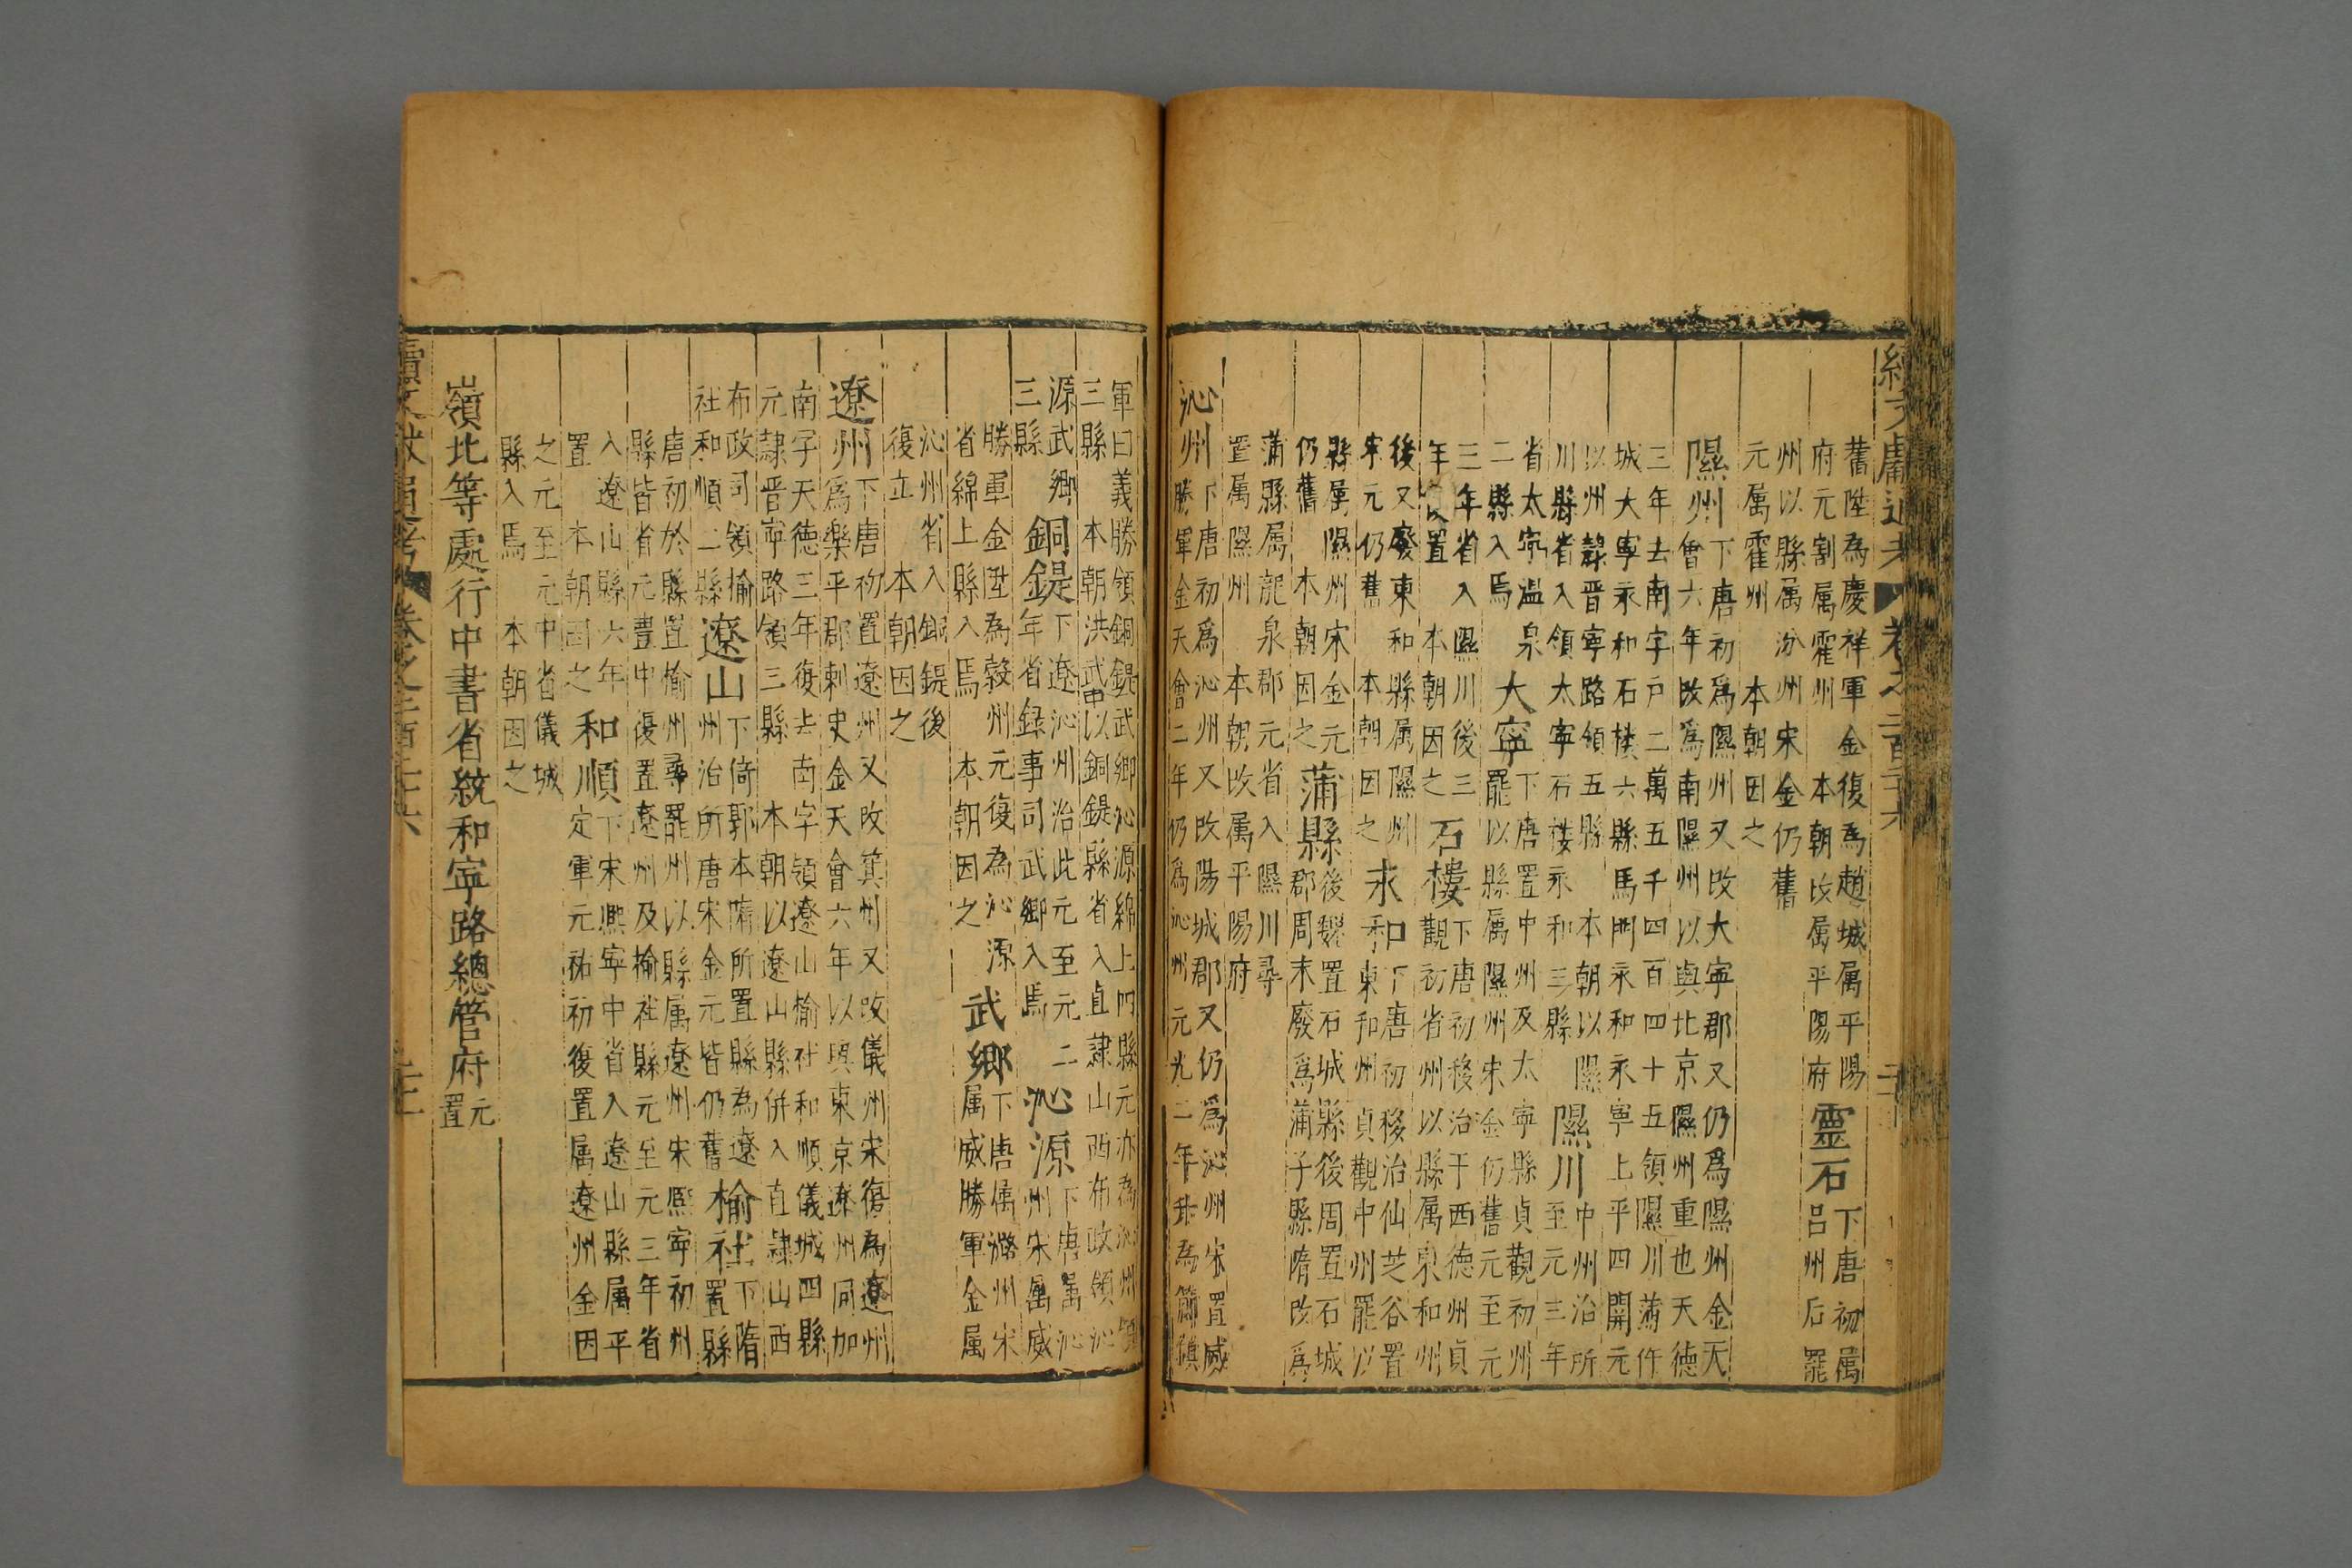 舊陞為慶祥軍金復為趙城属平陽
府元割属霍州　本朝改属平陽府
靈石
下唐初属
呂州后罷
州以縣属汾州宋金仍舊
元属霍州　本朝因之
隰州
下唐初爲隰州又改大寧郡又仍爲隰州金天
會六年改爲南隰州以與北京隰州重也天德
三年去南字户二萬五千四百四十五領隰川蒲仵
城大寧永和石樓六縣馬門永和永寧上平四關元
以州隸晋寧路領五縣　本朝以隰
川縣省入領太寧石樓永和三縣
隰川
中州治所
至元三年
省太寧温泉
二縣入焉
大寧
下唐置中州及太寧縣貞觀初州
罷以縣属隰州宋金仍舊元至元
三年省入隰川後三
年復置　本朝因之
石樓
下唐初移治于西德州貞
觀初省州以縣属東和州
後又廢東和縣属隰州
宋元仍舊　本朝因之
永和
下唐初移治仙芝谷置
東和州貞觀中州罷以
縣属隰州宋金元
仍舊　本朝因之
蒲縣
後魏置石城縣後周置石城
郡周末廢爲蒲子縣隋改爲
蒲縣属龍泉郡元省入隰川尋
置属隰州　本朝改属平陽府
沁州
下唐初爲沁州又改陽城郡又仍爲沁州宋置威
勝軍金天會二年仍爲沁州元光二年升為節鎮
軍曰義勝領銅鍉武卿沁源綿上四縣元亦為沁州領
三縣　本朝洪武中以銅鍉縣省入直隷山西布政領沁
源武卿
三縣
銅鍉
下遼沁州治此元至元二
年省録事司武卿入焉
沁源
下唐属沁
州宋属威
勝軍金陞為穀州元復為沁源
省綿上縣入焉　本朝因之
武鄉
下唐属潞州宋
属威勝軍金属
沁州省入銅鍉後
復立　本朝因之
遼州
下唐初置遼州又改箕州又改儀州宋復為遼州
為樂平郡刺史金天會六年以與東京遼州同加
南字天德三年復去南字領遼山榆社和順儀城四縣
元隷晋寧路領三縣　本朝以遼山縣併入直隷山西
布政司領榆
社和順二縣
遼山
下倚郭本隋所置縣為遼
州治所唐宋金元皆仍舊
榆社
下隋
置縣
唐初於縣置榆州尋罷州以縣属遼州宋熙寧初州
縣皆省元豊中復置遼州及榆社縣元至元三年省
入遼山縣六年
置　本朝因之
和順
下宋熈寧中省入遼山縣属平
定軍元祐初復置属遼州金因
之元至元中省儀城
縣入焉　本朝因之
嶺北等處行中書省統和寧路總管府
元
置